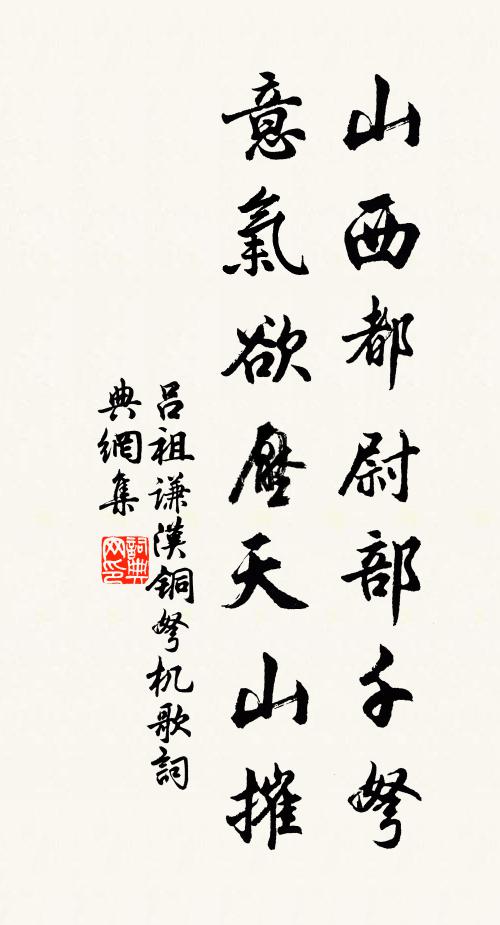 山西都尉部千弩
意氣欲壓天山摧
吕祖谦漢铜弩机歌詞
典網集
詞典网印